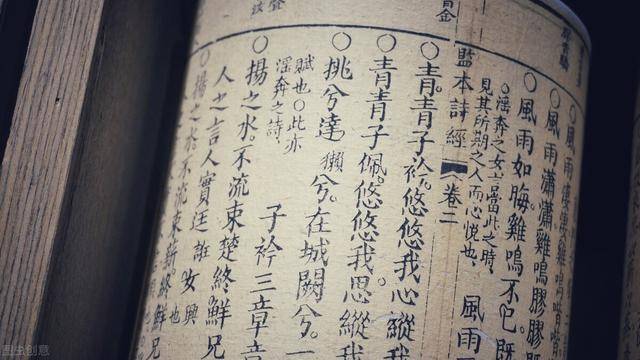 ○風雨淒淒雞鳴喈喈
○風雨瀟瀟雞鳴膠膠
○風雨如晦。雞鳴不已。既
○淫奔之女言當此之時。
見其所期之人而心悅也。
風雨
監本詩經 卷二
○青青子衿。悠悠我心。縱
○青青子佩。悠悠我思。縱我
○挑兮達獺兮。在城闕兮。一
賦也○此亦
淫奔之詩
子衿三章章
○揚之水。不流束楚。終鮮兄
人之言人實廷誑女興
也
○揚之水。不流束薪。終鮮兄
音金
图虫创意